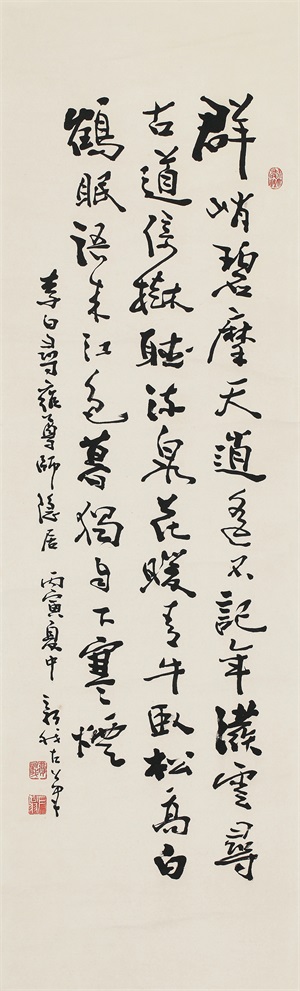 群峭碧摩天逍遙不記年撥雲尋
古道倚樹聽流泉花暖青牛臥松高白
鶴眠語来江色暮獨自下寒煙
李白尋雍尊師隱居 丙寅夏中 新我左筆